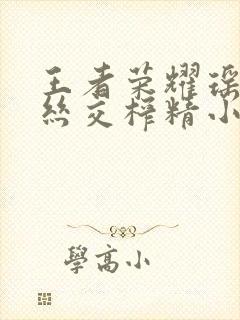 王者荣耀瑶
丝交榨精小
學高小